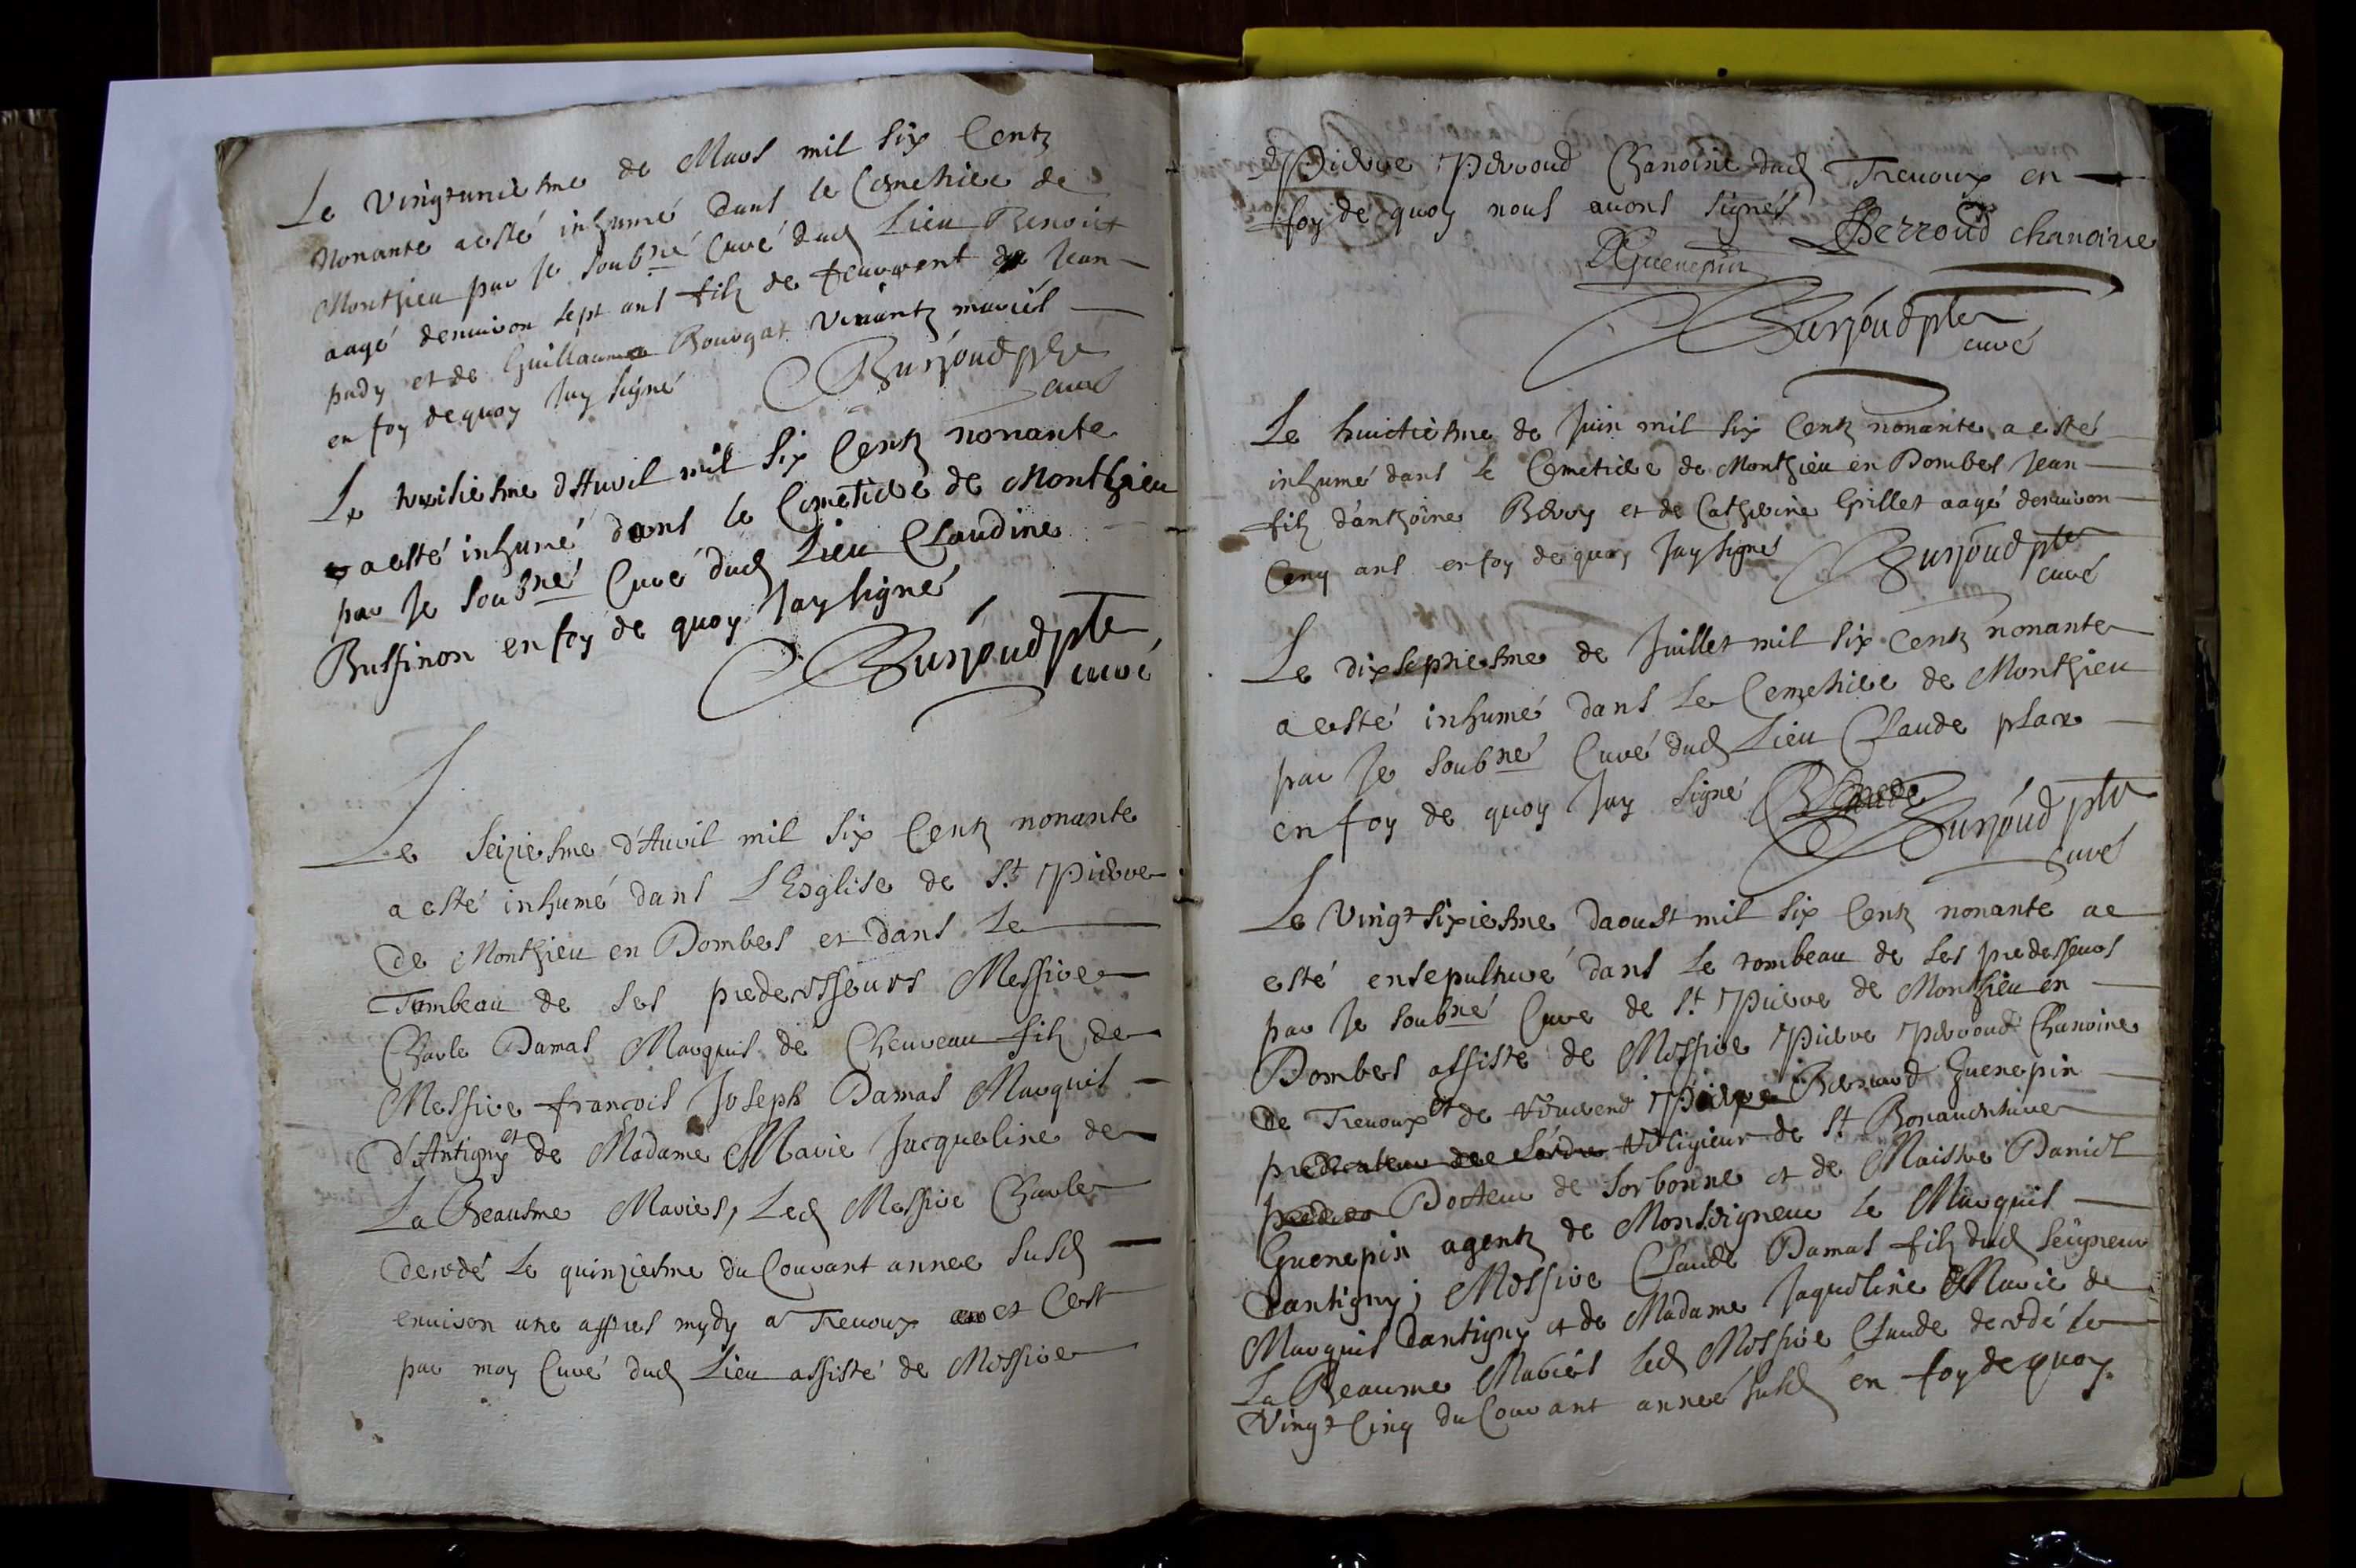 Le vingtuniesme de Mars mil six Centz
nonante a esté inhumé dans le Cimetiere de
Monthieu par Je soubné Curé dud Lieu Benoict
aagé denuiron sept ans filz de feu Jean
pady et de Guillaume Bourgat viuantz mariés
en foy de quoy Jay signé Burjoud ptre
curé
Le huitiesme d'Auril mil six Centz nonante
a esté inhumé dans le Cimetiere de Monthieu
par Je soubné Curé dud Lieu Claudine
Bussinon en foy de quoy Jay signé
Burjoud ptre
curé
Le seiziesme d'Auril mil six Centz nonante
a esté inhumé dans L'Esglise de St Pierre
de Monthieu en Dombes et dans Le
Tombeau de ses predecesseurs Messire
Charle Damas Marquis de Cheureau filz de
Messire françois Joseph Damas Marquis
d'Antigny et de Madame Marie Jacqueline de
La Beausme Maries, Led Messire Charle
decedé Le quinziesme du Courant annee susd
enuiron une appres mydy a Treuoux et Cest
par moy Curé dud Lieu assisté de Messire
Pierre Perroud Chanoine dud Treuoux en
foy de quoy nous auons signés
DGuenepin Perroud chanoine
Burjoud ptre
curé
Le huictiesme de Juin mil six Centz nonante a esté
inhumé dans le Cemetiere de Monthieu en Dombes Jean
filz d'anthoine Berry et de Catherine Grillet aagé denuiron
Cinq ans en foy de quoy Jay signé Burjoud ptre
curé
Le dixseptiesme de Juillet mil six Centz nonante
a esté inhumé dans Le Cemetiere de Monthieu
par Je soubné Curé dud Lieu Claude
en foy de quoy Jay signé
Burjoud ptre
curé
Le vingt sixiesme daoust mil six Centz nonante ae
esté ensepulturé dans Le tombeau de ses predessseurs
par Je soubné Cure de St Pierre de Monthieu en
Dombes assiste de Messire Pierre Perroud Chanoine
de Treuoux et de Reuerend Bernard Guenepin
predicateur de Religieux de St Bonauenture
Docteur de sorbonne et de Maistre Daniel
Guenepin agentz de Monseigneur le Marquis
Dantigny; Messire Claude Damas filz dud seigneur
Marquis Dantigny et de Madame Jaqueline Marie de
La Beaume Mariés led Messire Claude decedé le
Vingt Cinq du Courant année susd en foy de quoy